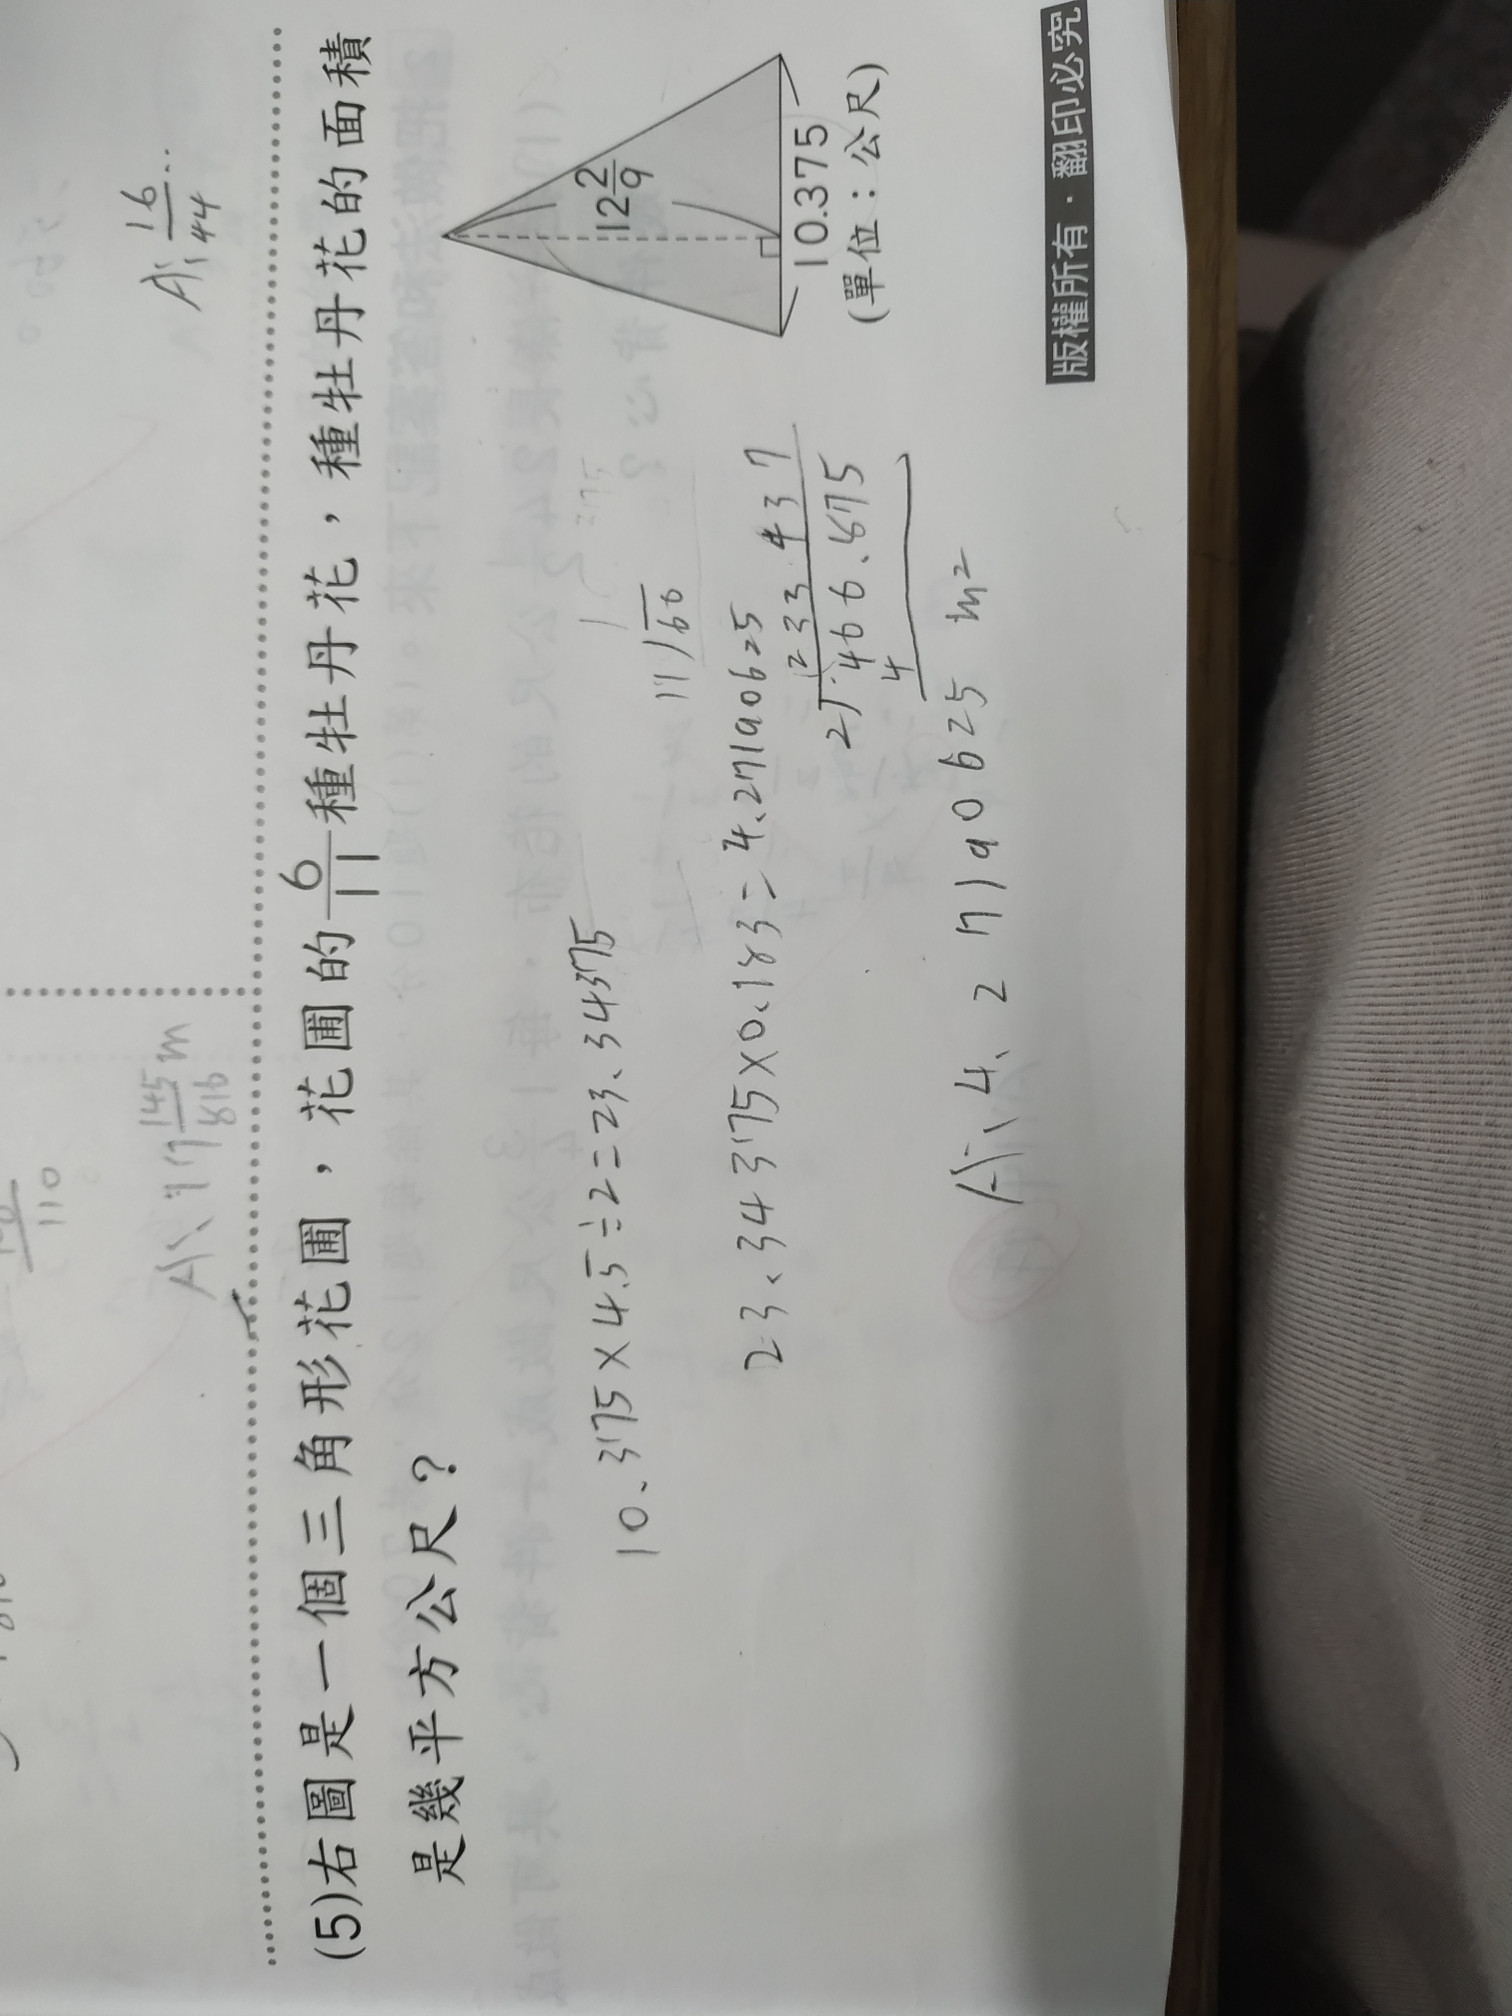 A: 16/44
A: 17 145/816 m
110
(5)右圖是一個三角形花圃，花圃的6/11種牡丹花，種牡丹花的面積
是幾平方公尺？
12 2/9
10.375
(單位：公尺)
10.375×4.5÷2=23.34375
11/60
23.34375×0.183=4.27190625
233.437
2 466.875
4
A: 4.27190625 m²
版權所有・翻印必究